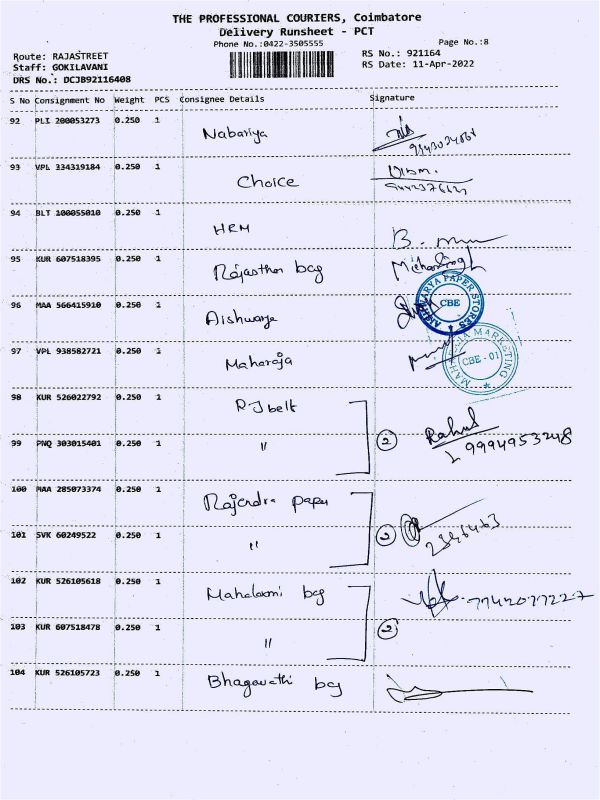 THE PROFESSIONAL COURIERS, Coimbatore
Delivery Runsheet - PCT
Phone No.:0422-3505555
Page No.:8
Route: RAJASTREET
RS No.: 921164
Staff: GOKILAVANI
RS Date: 11-Apr-2022
DRS No.: DCJB92116408
S No Consignment No Weight PCS Consignee Details Signature
92 PLI 200053273 0.250 1 Nabariya
93 VPL 334319184 0.250 1 Choice
94 BLT 100055010 0.250 1 HRM B.
95 KUR 607518395 0.250 1 Rajasthan bag
96 MAA 566415910 0.250 1 Aishwarya
PAPER STORES CBE
97 VPL 938582721 0.250 1 Maharaja
MARKETING CBE - 01
98 KUR 526022792 0.250 1 RJ belt Rahul
99 PNQ 303015401 0.250 1 " 2 9994953248
100 MAA 285073374 0.250 1 Rajendra paper
101 SVK 60249522 0.250 1 " 2 2346463
102 KUR 526105618 0.250 1 Mahalaxmi bag
103 KUR 607518478 0.250 1 " 2
104 KUR 526105723 0.250 1 Bhagavathi bag